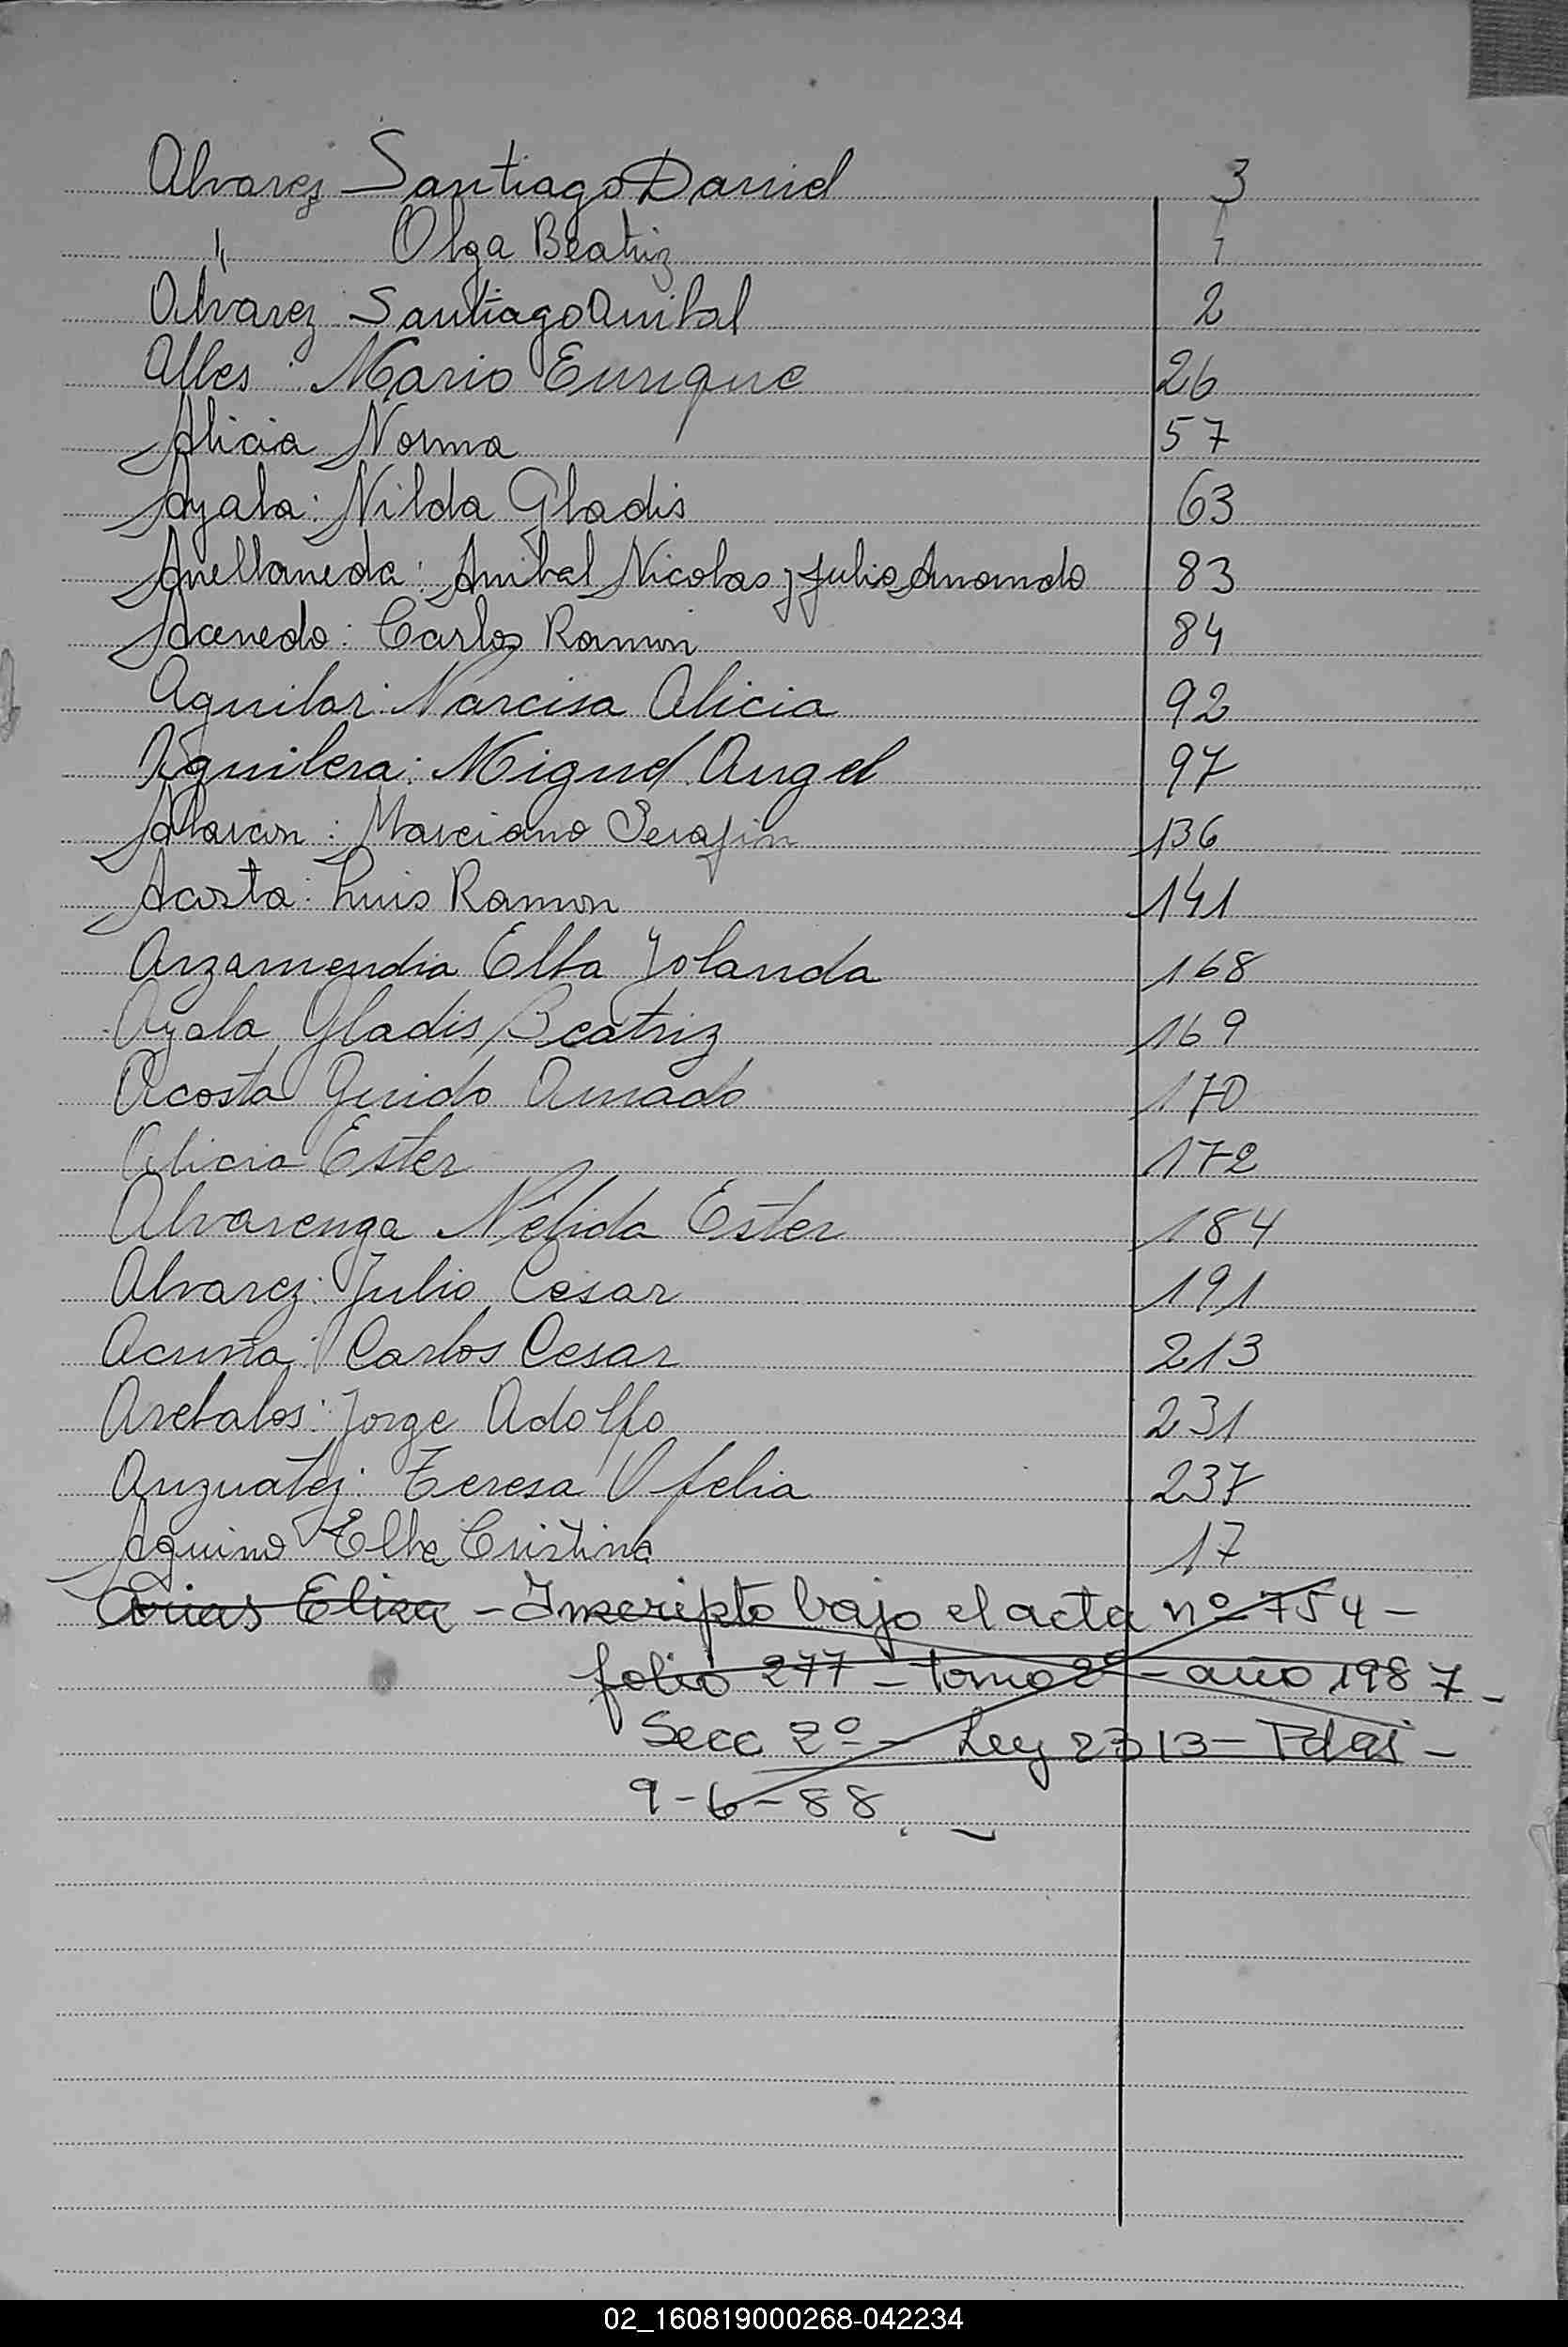 Alvarez Santiago Daniel 3
" Olga Beatriz 1
Alvarez Santiago Anibal 2
Alles Mario Enrique 26
Alicia Norma 57
Ayala: Nilda Gladis 63
Avellaneda: Anibal Nicolas y Julio Armando 83
Acevedo: Carlos Ramon 84
Aguilar: Narcisa Alicia 92
Aguilera: Miguel Angel 97
Alarcon: Marciano Serafin 136
Acosta: Luis Ramon 141
Arzamendia Elba Yolanda 168
Ayala Gladis Beatriz 169
Acosta Guido Amado 170
Alicia Ester 172
Alvarenga Nélida Ester 184
Alvarez: Julio Cesar 191
Acuña: Carlos Cesar 213
Arebalos: Jorge Adolfo 231
Teresa Ofelia 237
Aquino Elba Cristina 17
Arias Elisa - Inscripto bajo el acta nº 754 -
folio 277 - tomo 2º - año 1987 -
Secc 2º - Ley 2313 - Pdas -
9-6-88.
02_160819000268-042234